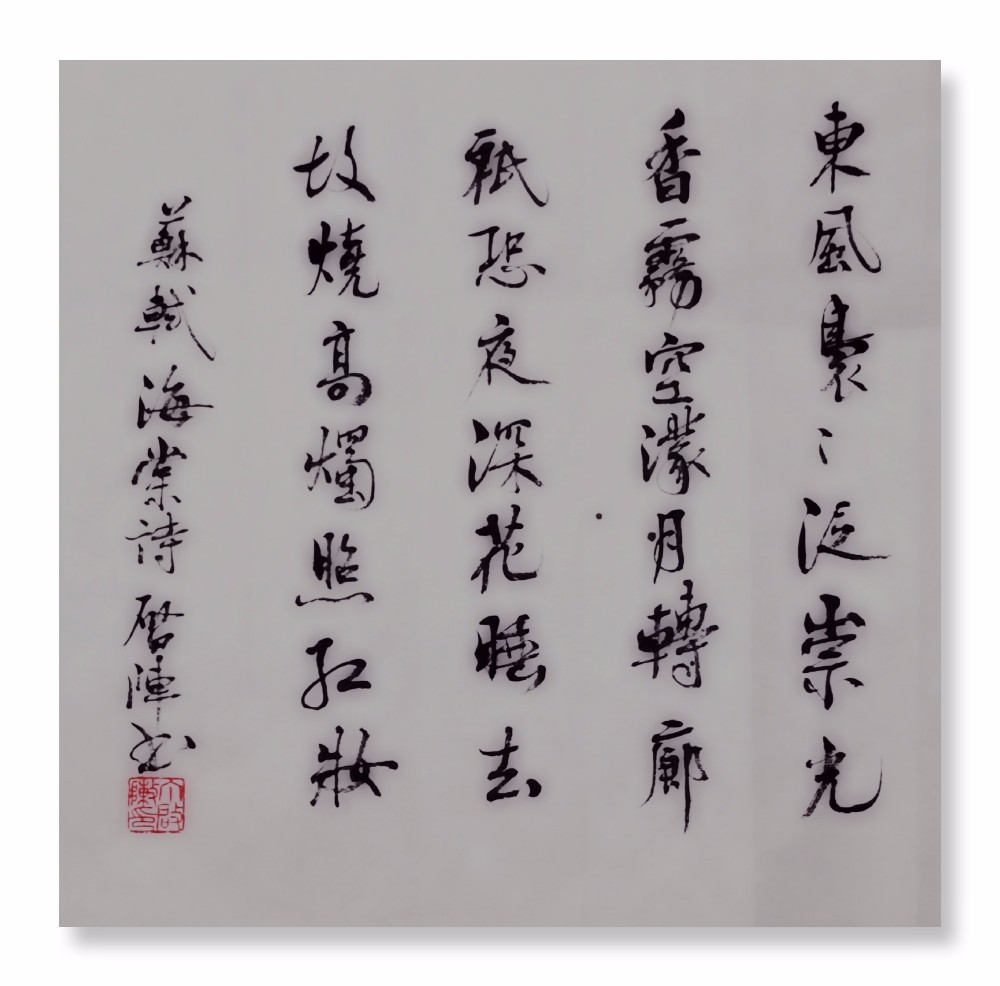 東風裊〻泛崇光
香霧空濛月轉廊
祇恐夜深花睡去
故燒高燭照紅妝
蘇軾海棠詩啓陣書